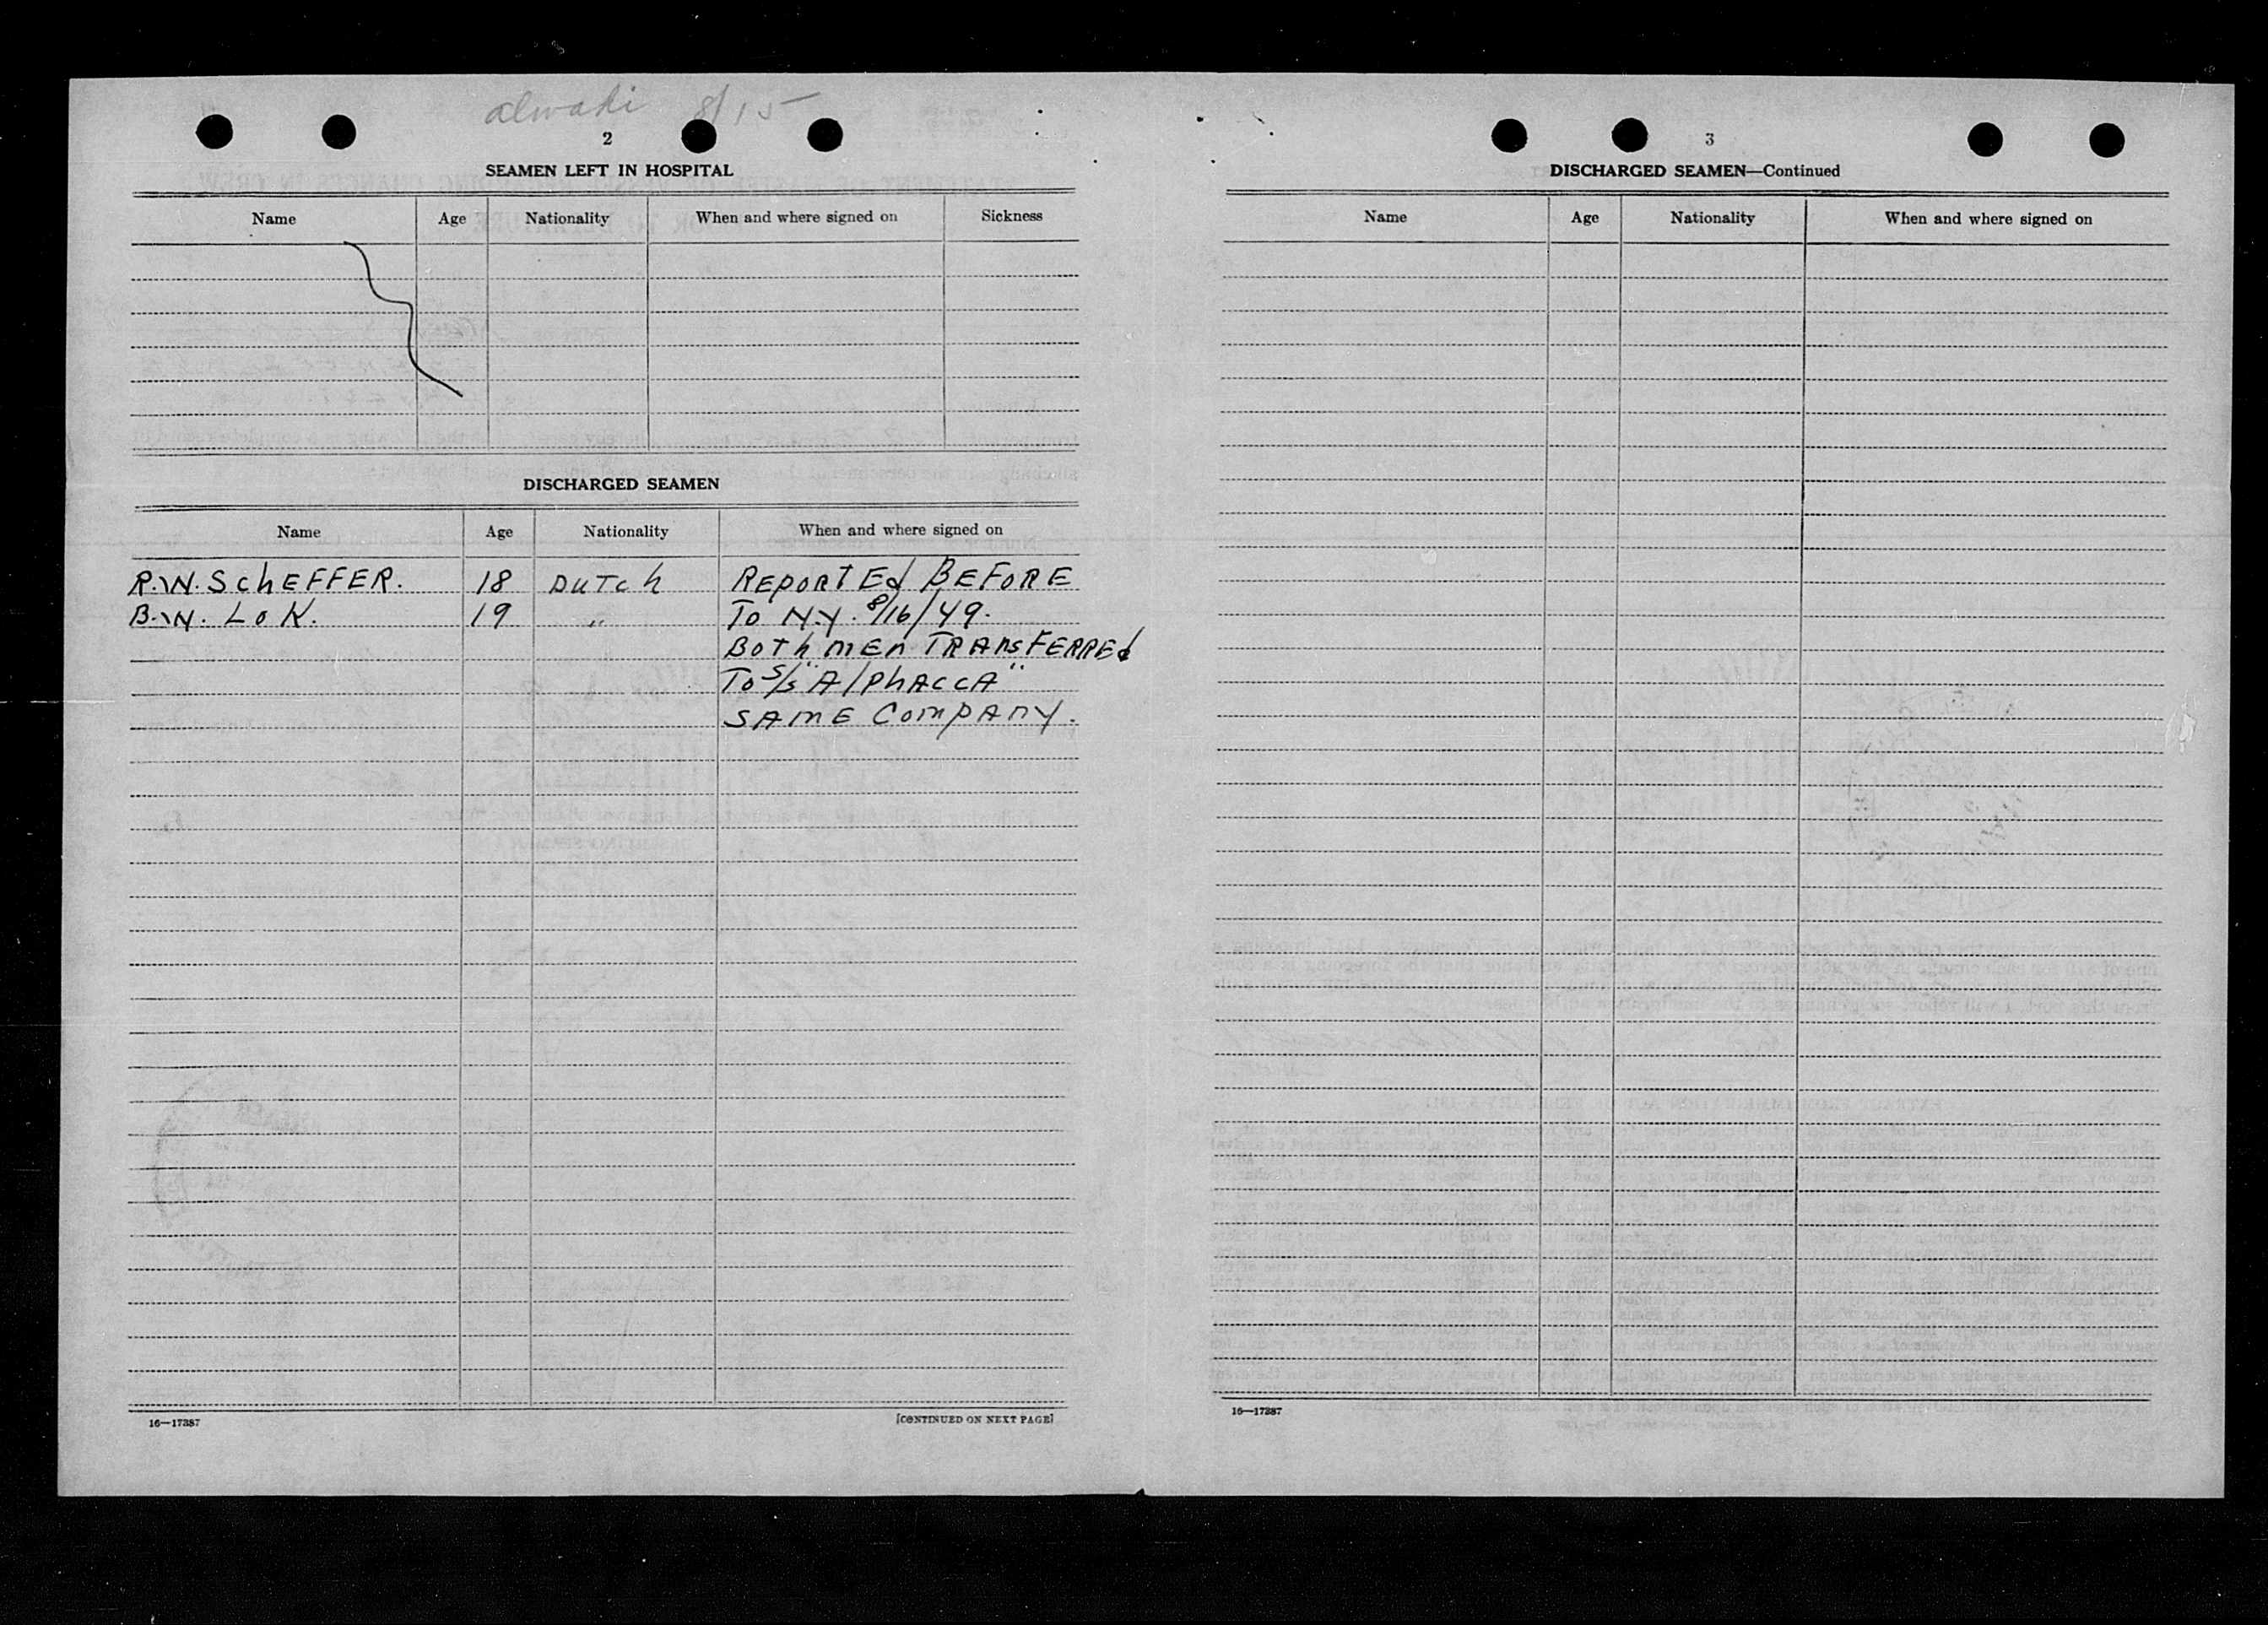 alwaki 8/15
2
SEAMEN LEFT IN HOSPITAL
Name Age Nationality When and where signed on Sickness
DISCHARGED SEAMEN
Name Age Nationality When and where signed on
R.W. SchEFFER. 18 DUTch REPORTEd BEFORE
B.W. LOK. 19 " To N.Y. 8/16/49.
BOTh MEn TRAnsFERREd
To S/S "AlPhACCA"
SAME COMPAnY.
16—17387
[CONTINUED ON NEXT PAGE]
3
DISCHARGED SEAMEN—Continued
Name Age Nationality When and where signed on
16—17387